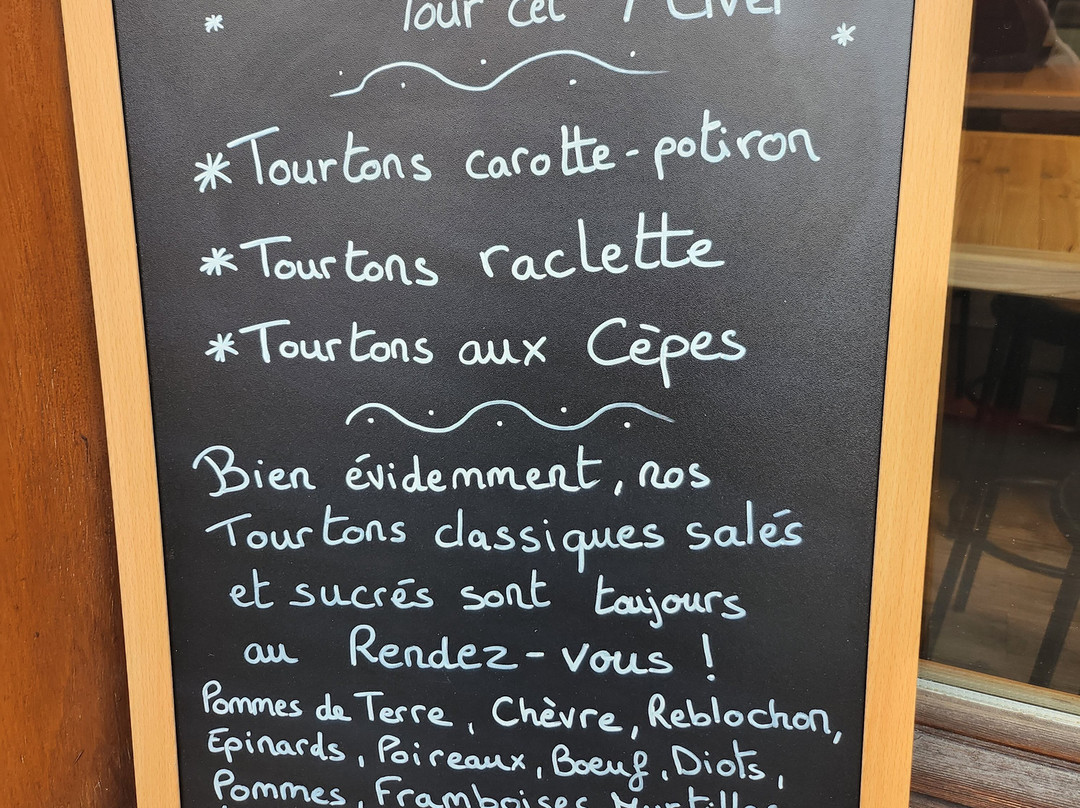 Pour cet Hiver
* Tourtons carotte-potiron
* Tourtons raclette
* Tourtons aux Cèpes
Bien évidemment, nos
Tourtons classiques salés
et sucrés sont toujours
au Rendez-vous !
Pommes de Terre, Chèvre, Reblochon,
Epinards, Poireaux, Boeuf, Diots,
Pommes, Framboises, Myrtilles